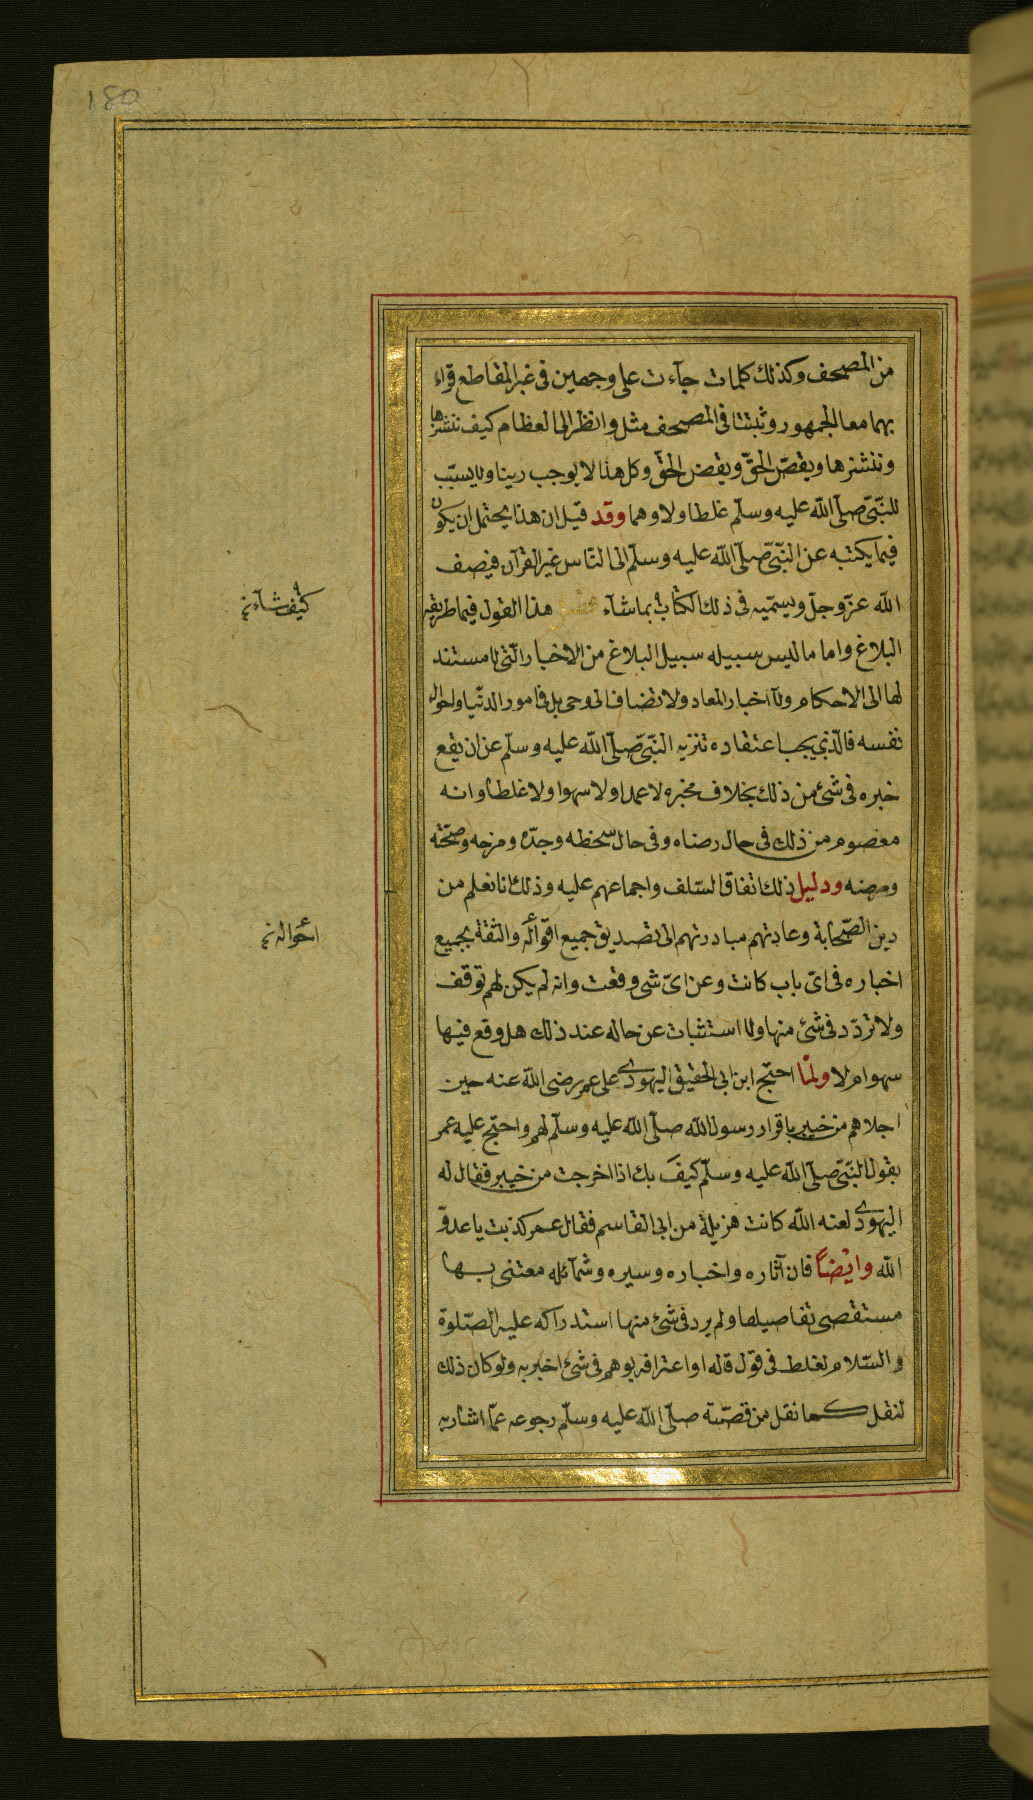 180
من المصحف وكذلك كلمات جآءت على وجهين فى غير المقاطع قراء
بهما معا الجمهور وثبتتا فى المصحف مثل وانظر الى العظام كيف ننشرها
وننشزها ويقصّ الحقّ ويقض الحقّ وكل هذا لا يوجب ريبا ولا يسبّب
للنّبىّ صلّى الله عليه وسلّم غلطا ولا وهما وقد قيل ان هذا يحتمل ان يكون
فيما يكتبه عن النّبىّ صلّى الله عليه وسلّم الى النّاس غير القرآن فيصف
الله عزّ وجلّ ويسمّيه فى ذلك الكتاب بما شآء هذا القول فيما طريقه
كيف شآء
البلاغ واما ما ليس سبيله سبيل البلاغ من الاخبار الّتى لا مستند
لها الى الاحكام ولا اخبار المعاد ولا تضاف الى وحى بل فى امور الدّنيا واحوال
نفسه فالّذى يجب اعتقاده تنزيه النّبىّ صلّى الله عليه وسلّم عن ان يقع
خبره فى شئ من ذلك بخلاف مخبره لا عمدا ولا سهوا ولا غلطا وانه
معصوم من ذلك فى حال رضاه وفى حال سخطه وجدّه ومزحه وصحّته
ومرضه ودليل ذلك اتفاق السّلف واجماعهم عليه وذلك انا نعلم من
دين الصّحابة وعادتهم مبادرتهم الى تصديق جميع اقواله والثّقة بجميع
احواله
اخباره فى اىّ باب كانت وعن اىّ شئ وقعت وانه لم يكن لهم توقف
ولا تردّد فى شئ منها ولا استثبات عن حاله عند ذلك هل وقع فيها
سهو ام لا ولمّا احتج ابن ابى الحقيق اليهودى على عمر رضى الله عنه حين
اجلاهم من خيبر باقرار رسول الله صلّى الله عليه وسلّم لهم واحتج عليه عمر
بقول النّبىّ صلّى الله عليه وسلّم كيف بك اذا اخرجت من خيبر فقال له
اليهودى لعنه الله كانت هزيلة من ابى القاسم فقال عمر كذبت يا عدوّ
الله وايضاً فان آثاره واخباره وسيره وشمآئله معتنى بها
مستقصى تفاصيلها ولم يرد فى شئ منها استدراكه عليه الصّلوة
والسّلام لغلط فى قول قاله او اعترافه بوهم فى شئ اخبر به ولو كان ذلك
لنقل كما نقل من قصّته صلّى الله عليه وسلّم رجوعه عمّا اشار به